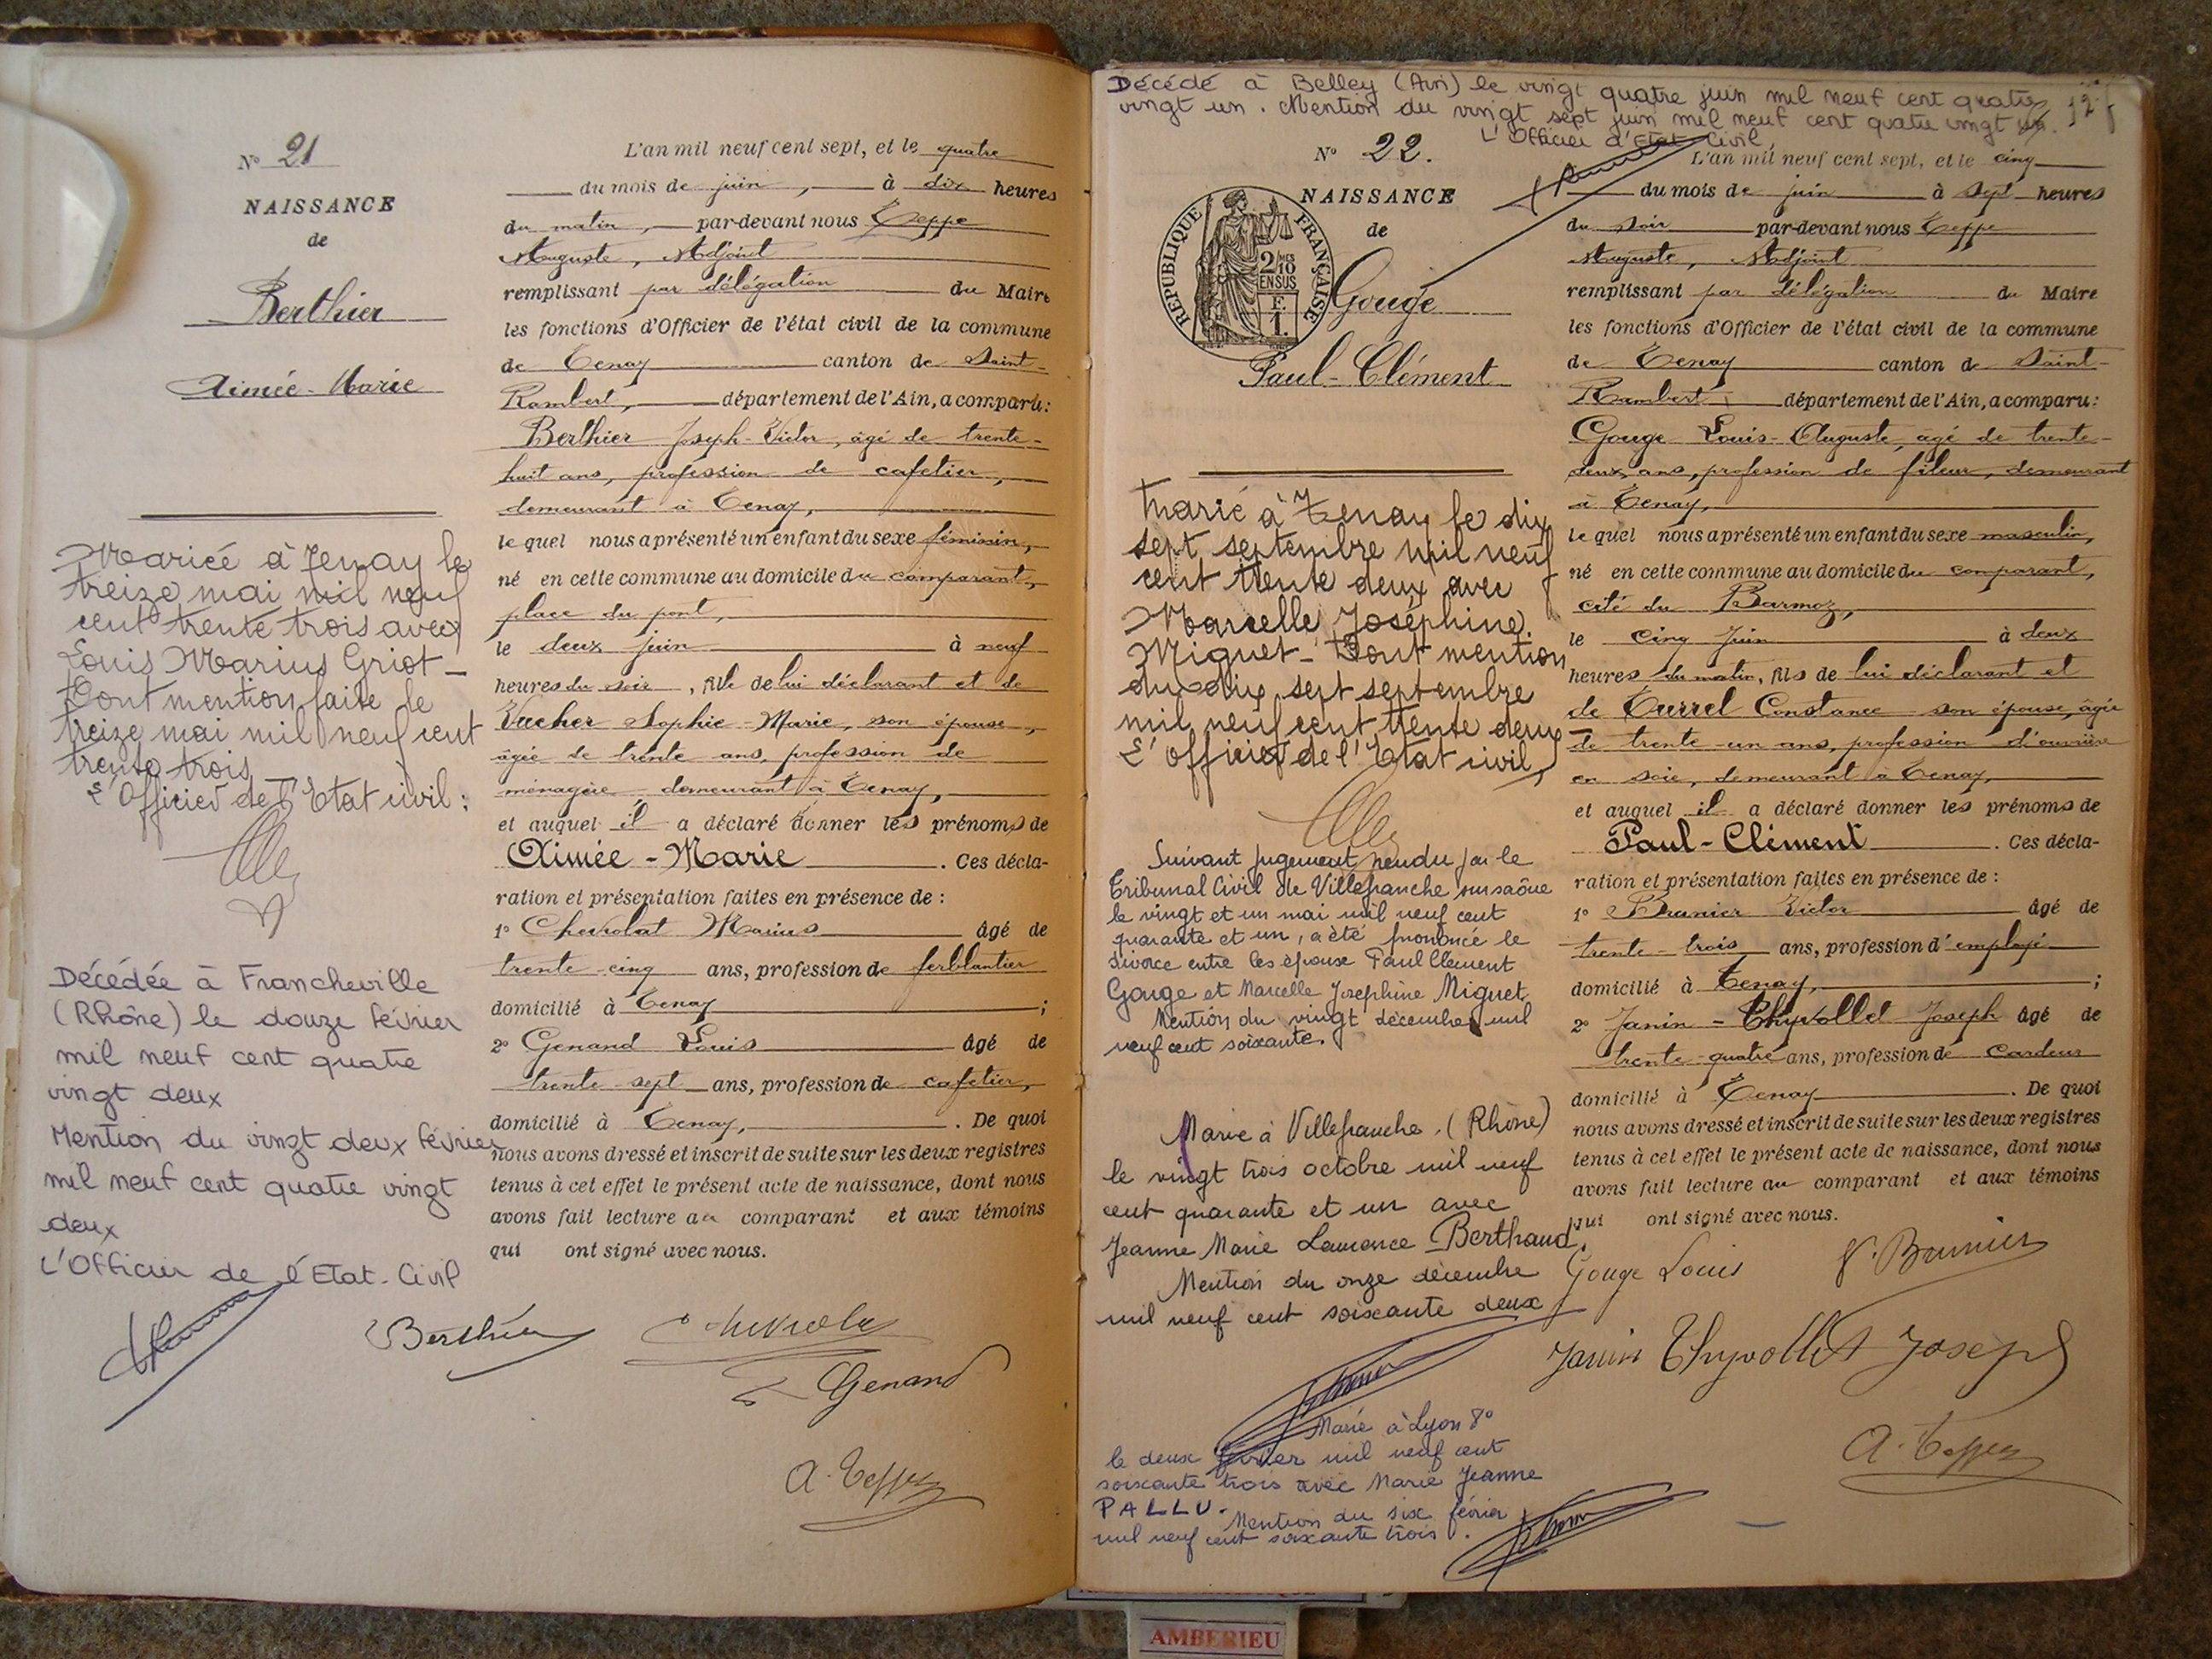 N° 21
NAISSANCE
de
Berthier
Aimée-Marie
Mariée à Tenay le
treize mai mil neuf
cent trente trois avec
Louis Marius Griot –
Dont mention faite le
treize mai mil neuf cent
trente trois
L'Officier de l'Etat civil :
Décédée à Francheville
(Rhône) le douze février
mil neuf cent quatre
vingt deux
Mention du vingt deux février
mil neuf cent quatre vingt
deux
L'Officier de l'Etat-Civil
L'an mil neuf cent sept, et le quatre
du mois de juin, à dix heures
du matin, par-devant nous Teppe
Auguste, Adjoint
remplissant par délégation du Maire
les fonctions d'Officier de l'état civil de la commune
de Tenay canton de Saint-
Rambert, département de l'Ain, a comparu:
Berthier Joseph-Victor, âgé de trente-
huit ans, profession de cafetier,
demeurant à Tenay,
le quel nous a présenté un enfant du sexe féminin,
né en cette commune au domicile du comparant,
place du pont,
le deux juin à neuf
heures du soir, fille de lui déclarant et de
Vacher Sophie-Marie, son épouse,
âgée de trente ans, profession de
ménagère demeurant à Tenay,
et auquel il a déclaré donner les prénoms de
Aimée-Marie. Ces décla-
ration et présentation faites en présence de :
1° Chevrolat Marius âgé de
trente-cinq ans, profession de ferblantier
domicilié à Tenay ;
2° Genand Louis âgé de
trente-sept ans, profession de cafetier,
domicilié à Tenay, . De quoi
nous avons dressé et inscrit de suite sur les deux registres
tenus à cet effet le présent acte de naissance, dont nous
avons fait lecture au comparant et aux témoins
qui ont signé avec nous.
Berthier
Chevrolat
Genand
A. Teppe
Décédé à Belley (Ain) le vingt quatre juin mil neuf cent quatre
vingt un. Mention du vingt sept juin mil neuf cent quatre vingt un.
L'Officier d'Etat Civil,
N° 22.
NAISSANCE
de
RÉPUBLIQUE FRANÇAISE
2/10 MES
EN SUS
F.
1.
Gouge
Paul-Clément
Marié à Tenay le dix
sept septembre mil neuf
cent trente deux avec
Marcelle Joséphine
Miguet – Dont mention
du dix sept septembre
mil neuf cent trente deux –
L'officier de l'Etat civil,
Suivant jugement rendu par le
Tribunal Civil de Villefranche sur saône
le vingt et un mai mil neuf cent
quarante et un, a été prononcé le
divorce entre les époux Paul Clément
Gouge et Marcelle Joséphine Miguet.
Mention du vingt décembre mil
neuf cent soixante.
Marié à Villefranche. (Rhône)
le vingt trois octobre mil neuf
cent quarante et un avec
Jeanne Marie Laurence Berthaud.
Mention du onze décembre
mil neuf cent soixante deux
Marié à Lyon 8°
le deux février mil neuf cent
soixante trois avec Marie Jeanne
PALLU.
Mention du six février
mil neuf cent soixante trois.
L'an mil neuf cent sept, et le cinq
du mois de juin à sept heures
du soir par-devant nous Teppe
Auguste, Adjoint
remplissant par délégation du Maire
les fonctions d'Officier de l'état civil de la commune
de Tenay canton de Saint-
Rambert département de l'Ain, a comparu:
Gouge Louis-Auguste, âgé de trente-
deux ans, profession de fileur, demeurant
à Tenay,
le quel nous a présenté un enfant du sexe masculin,
né en cette commune au domicile du comparant,
cité du Barmoz,
le cinq Juin à deux
heures du matin, fils de lui déclarant et
de Turrel Constance son épouse, âgée
de trente-un ans, profession d'ouvrière
en soie, demeurant à Tenay,
et auquel il a déclaré donner les prénoms de
Paul-Clément. Ces décla-
ration et présentation faites en présence de :
1° Brunier Victor âgé de
trente-trois ans, profession d'employé
domicilié à Tenay, ;
2° Janin-Thyvollet Joseph âgé de
trente-quatre ans, profession de cardeur
domicilié à Tenay. De quoi
nous avons dressé et inscrit de suite sur les deux registres
tenus à cet effet le présent acte de naissance, dont nous
avons fait lecture au comparant et aux témoins
qui ont signé avec nous.
Gouge Louis
V. Brunier
Janin Thyvollet Joseph
A. Teppe
AMBERIEU